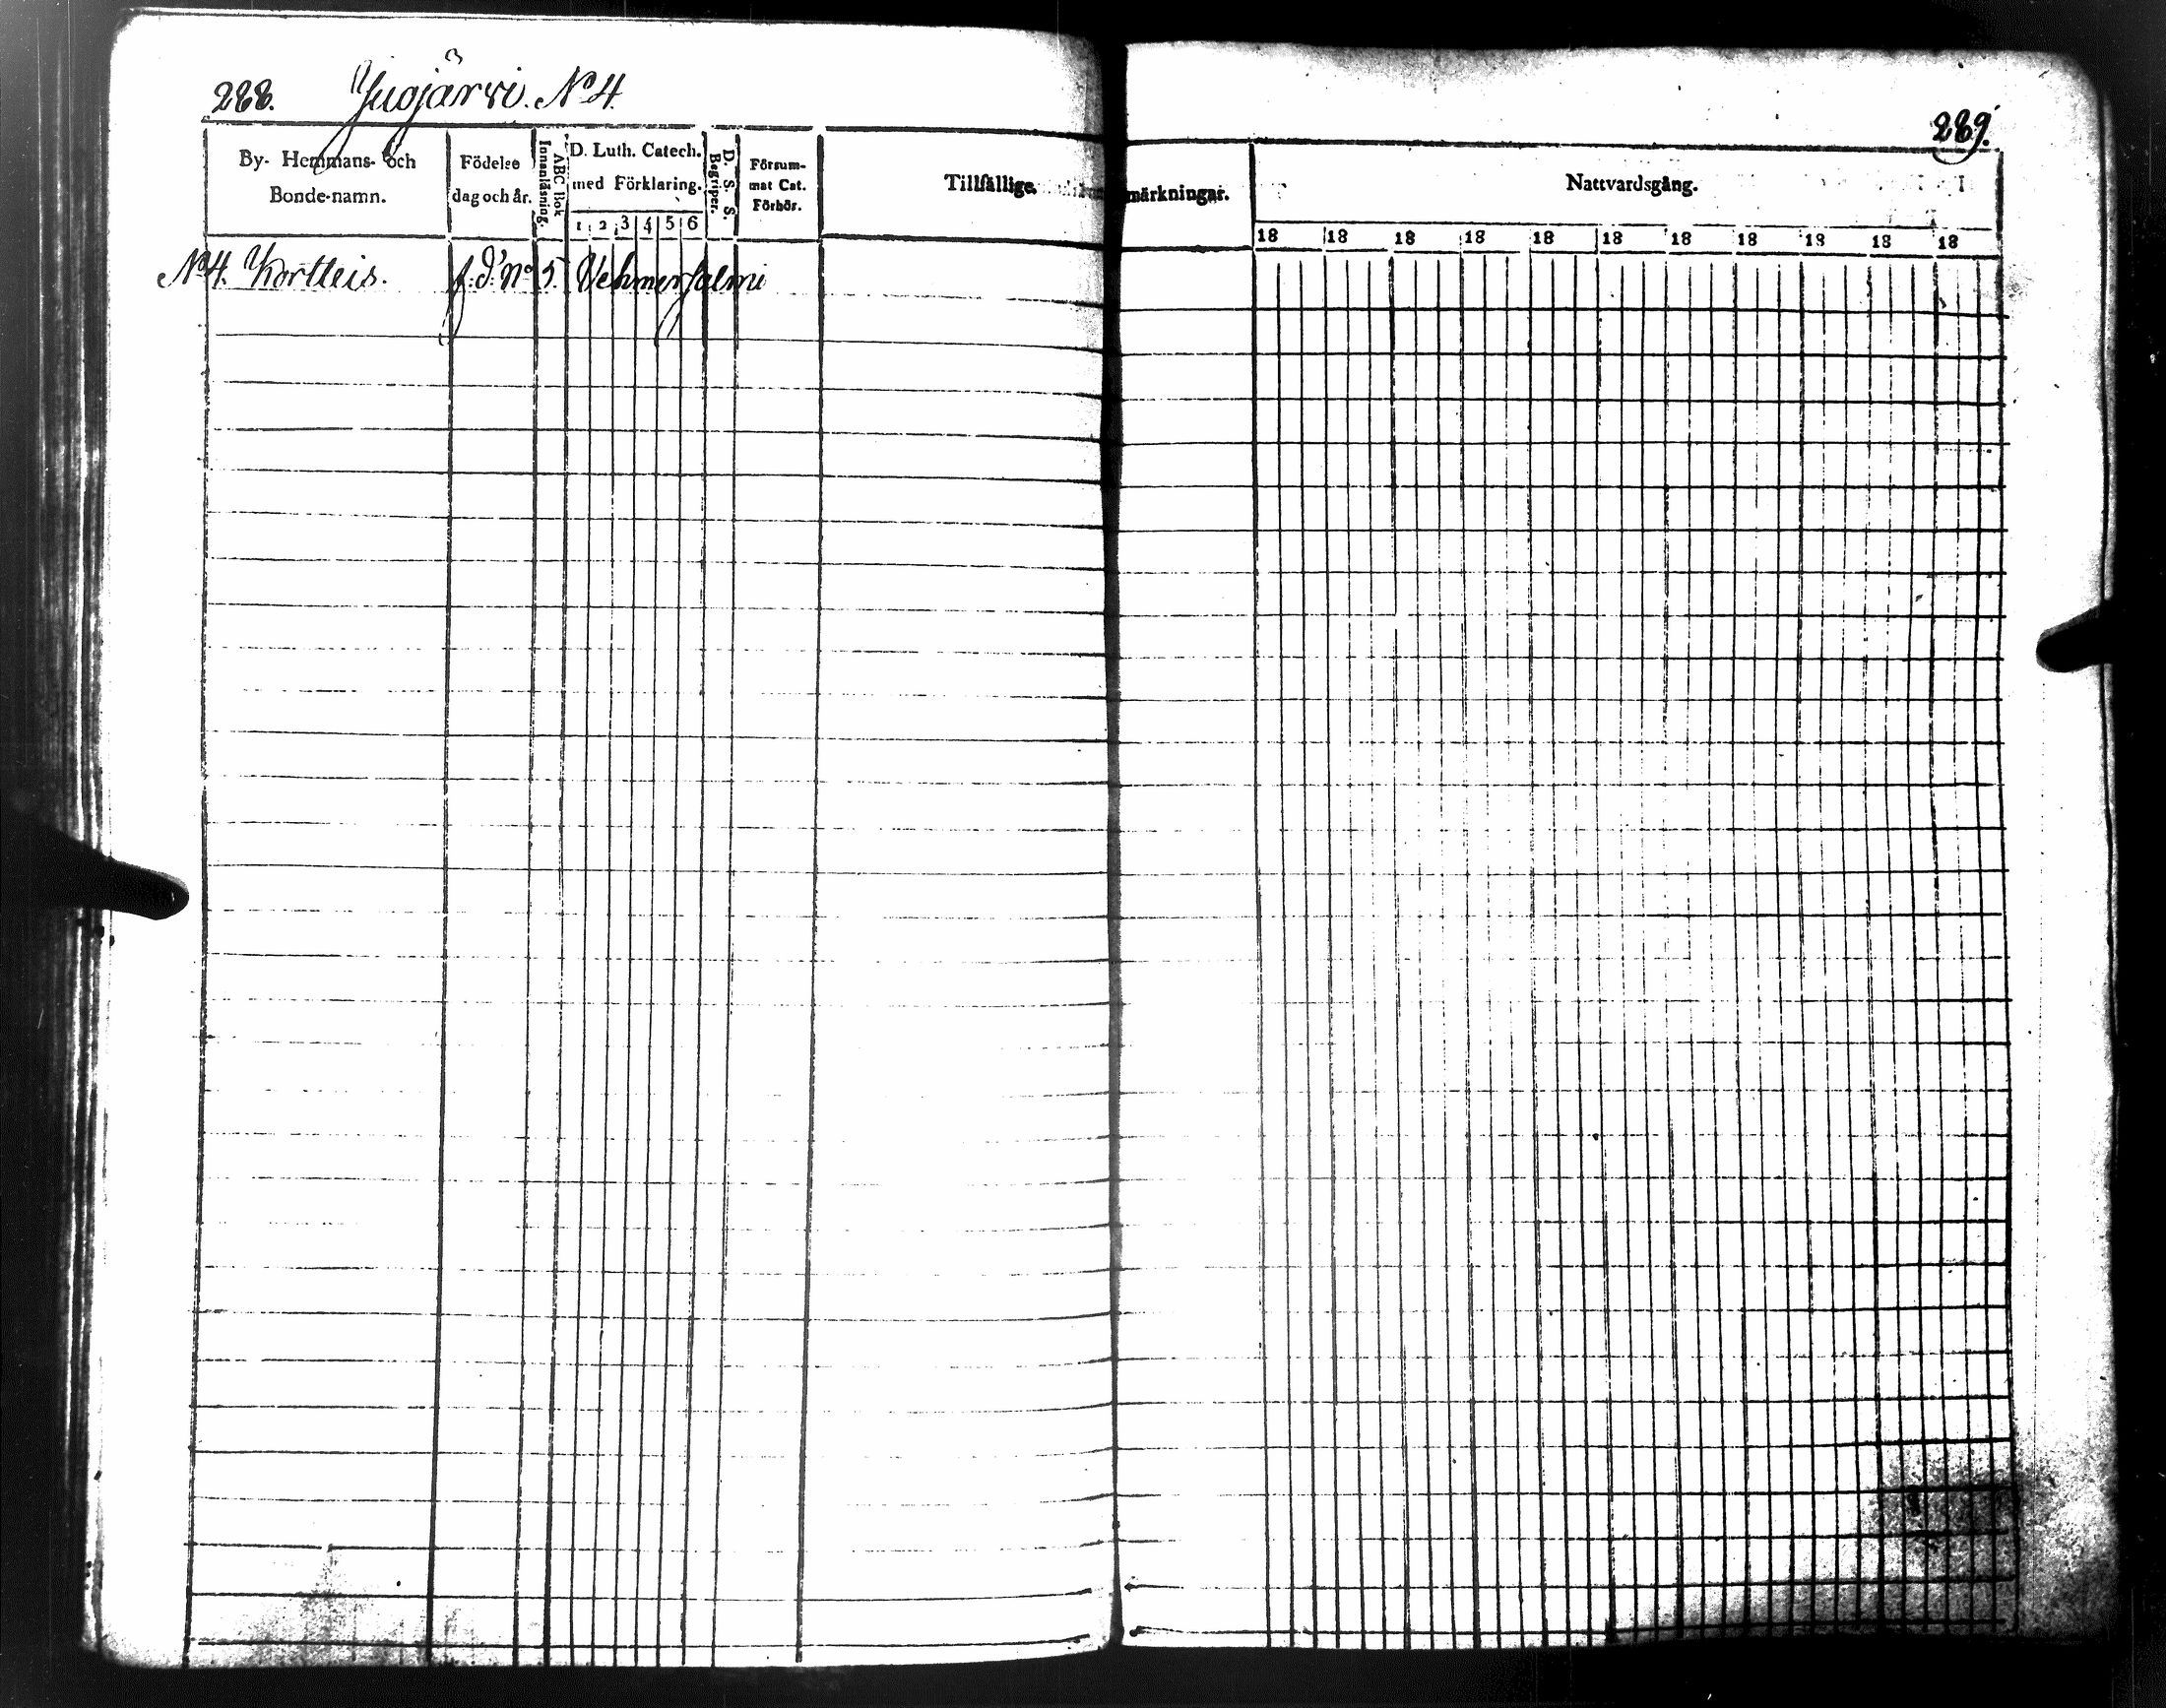 288. Jugjärvi. No 4.
289.
By- Hemmans- och Bonde-namn.
Födelse dag och år.
Innanläsning.
ABC Bok
D. Luth. Catech. med Förklaring.
1 2 3 4 5 6
D. S. S. Begriper.
Försum- mat Cat. Förhör.
Tillfällige märkningar.
Nattvardsgång.
18 18 18 18 18 18 18 18 18 18 18
No 4. Kortteis. f. d. No 5. Vehmersalmi